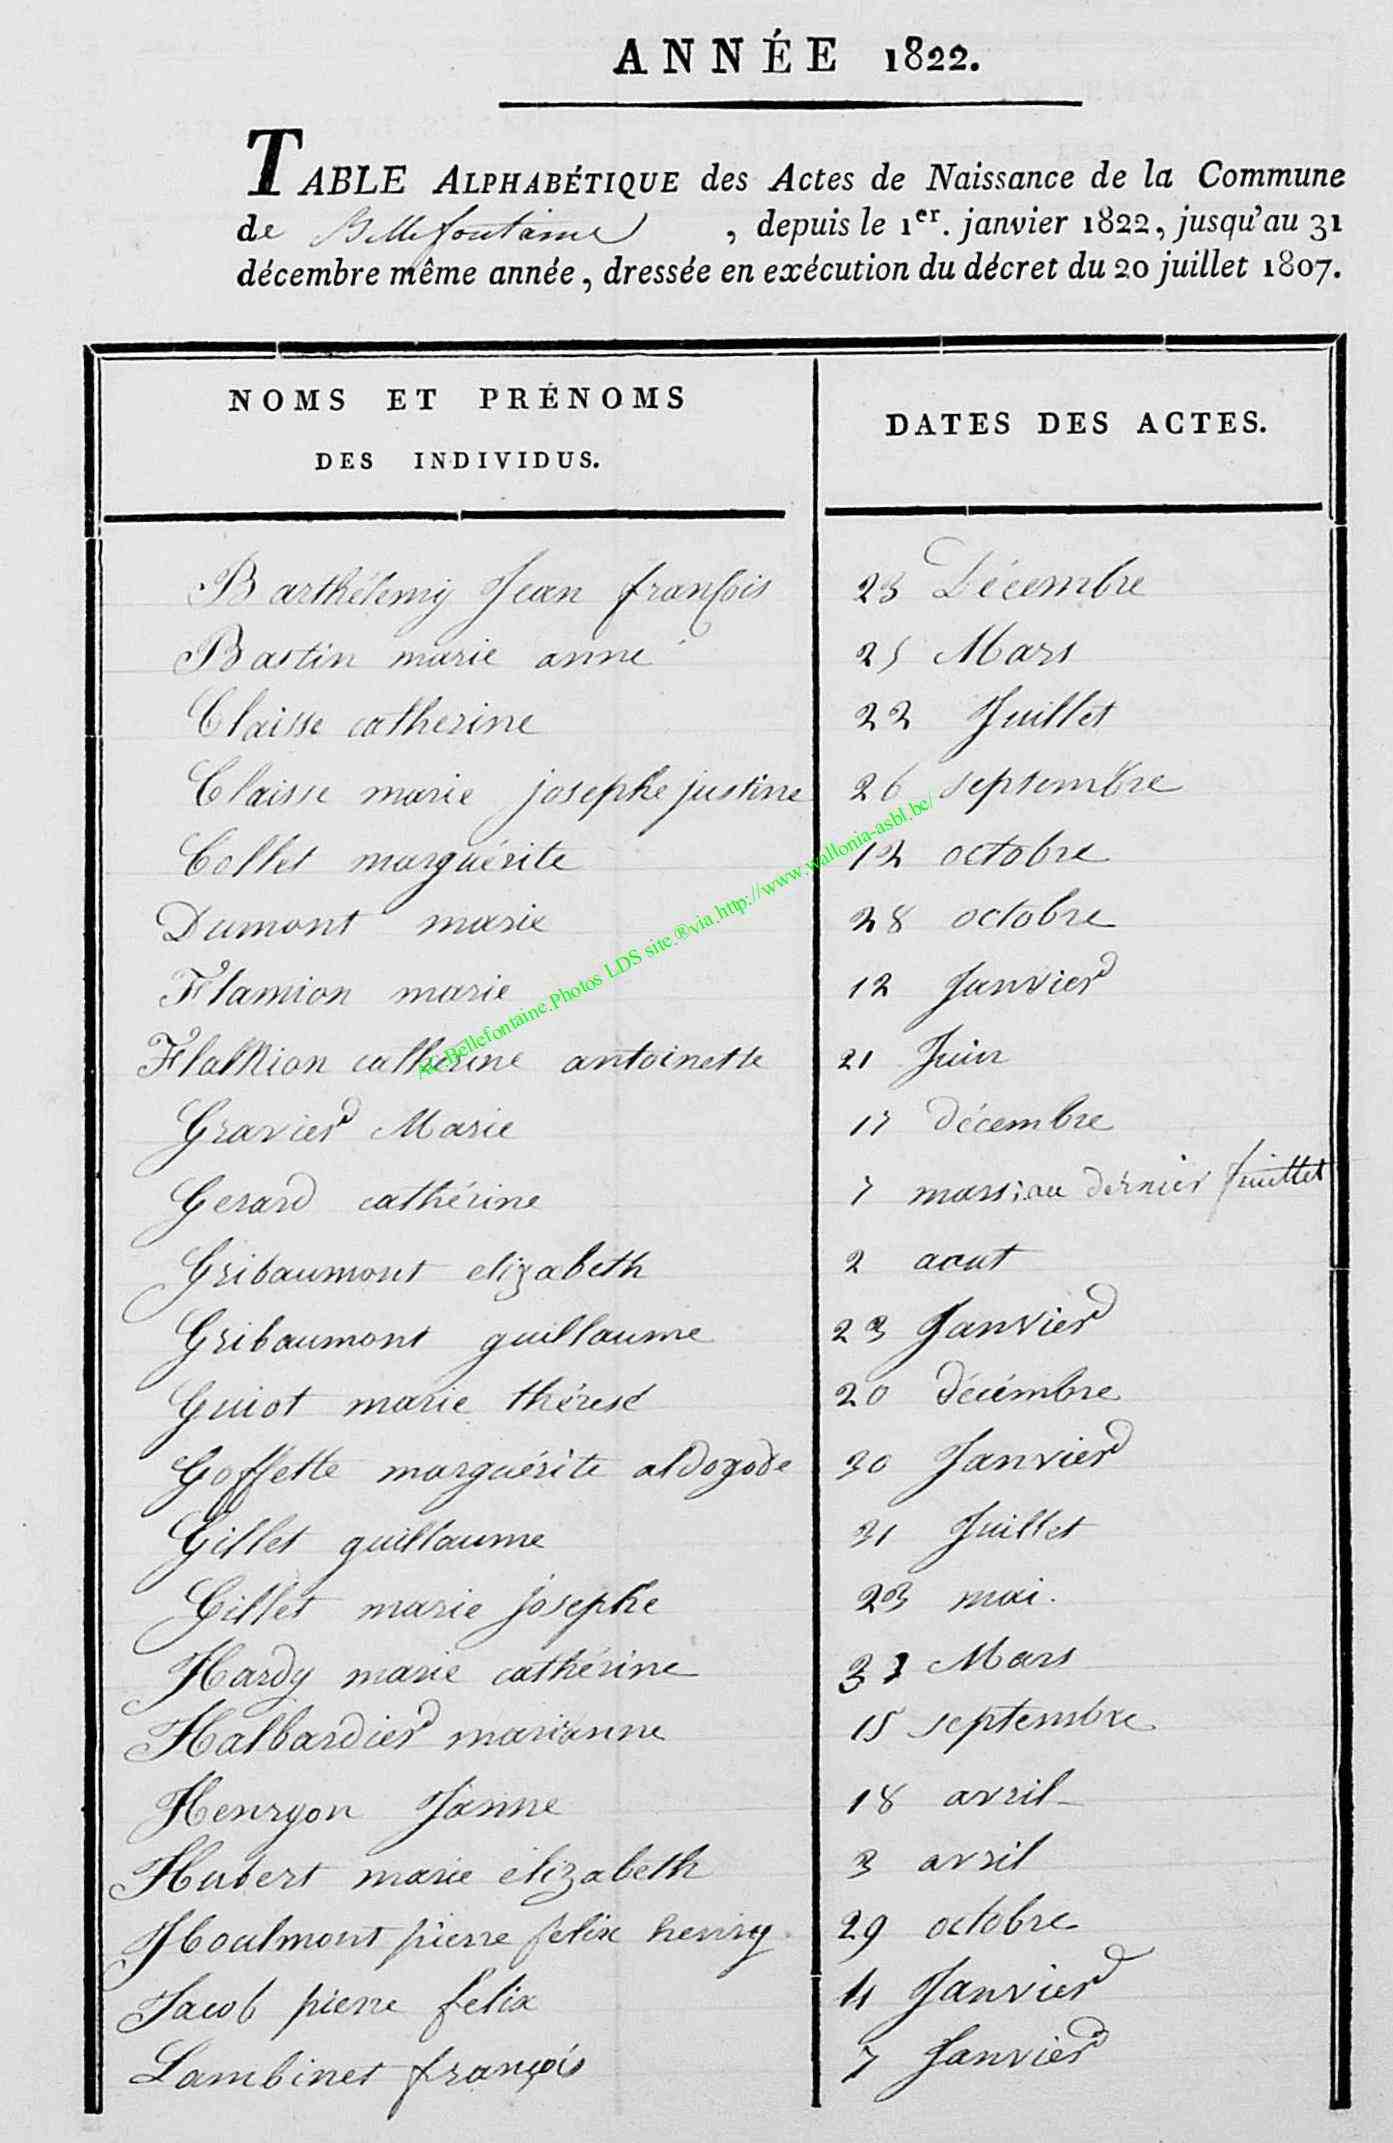 ANNÉE 1822.
TABLE ALPHABÉTIQUE des Actes de Naissance de la Commune
de Bellefontaine, depuis le 1er. janvier 1822, jusqu'au 31
décembre même année, dressée en exécution du décret du 20 juillet 1807.
NOMS ET PRÉNOMS
DES INDIVIDUS.
DATES DES ACTES.
Barthélemy Jean françois 23 Décembre
Bastin marie anne 25 Mars
Claisse catherine 22 Juillet
Claisse marie josephe justine 26 septembre
Collet marguérite 12 octobre
Dumont marie 28 octobre
Flamion marie 12 Janvier
Flamion catherine antoinette 21 Juin
Gravier Marie 17 décembre
Gerard cathérine 7 mars; au dernier feuillet
Gribaumont elizabeth 2 aout
Gribaumont guillaume 23 Janvier
Guiot marie thérese 20 décembre
Goffette marguérite aldogode 30 Janvier
Gillet guillaume 31 Juillet
Gillet marie josephe 23 mai.
Hardy marie cathérine Mars
Halbardier marianne 15 septembre
Henryon Janne 18 avril
Hubert marie élizabeth 3 avril
Houlmont pierre felix henry 29 octobre
Jacob pierre felix 4 Janvier
Lambinet françois 7 Janvier
Ac.Bellefontaine.Photos LDS site.®via.http://www.wallonia-asbl.be/